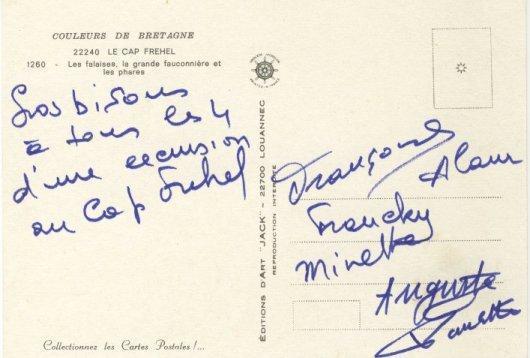 COULEURS DE BRETAGNE
22240 LE CAP FREHEL
1260 - Les falaises, la grande fauconnière et
les phares
Gros bisous
à tous les 4
d'une excursion
au Cap Frehel
EDITIONS D'ART "JACK" - 22700 LOUANNEC
REPRODUCTION INTERDITE
Françoise Alain
Francky
Mirette
Auguste
Paulette
Collectionnez les Cartes Postales !...